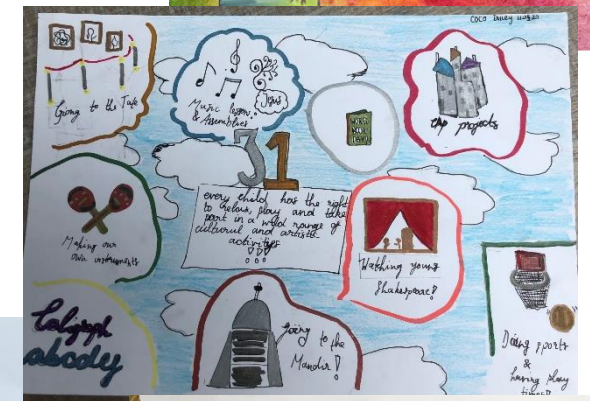 COCO
Going to the Tate
Music lessons
& Assemblies
Jesus
the projects
31
every child has the right
to relax, play and take
part in a wild range of
cultural and artistic
activities
Making our
own instruments
Wathing young
Shakespeare!
Caligraph
abcdef
going to the
Mandir!
Doing sports
&
having play
times!